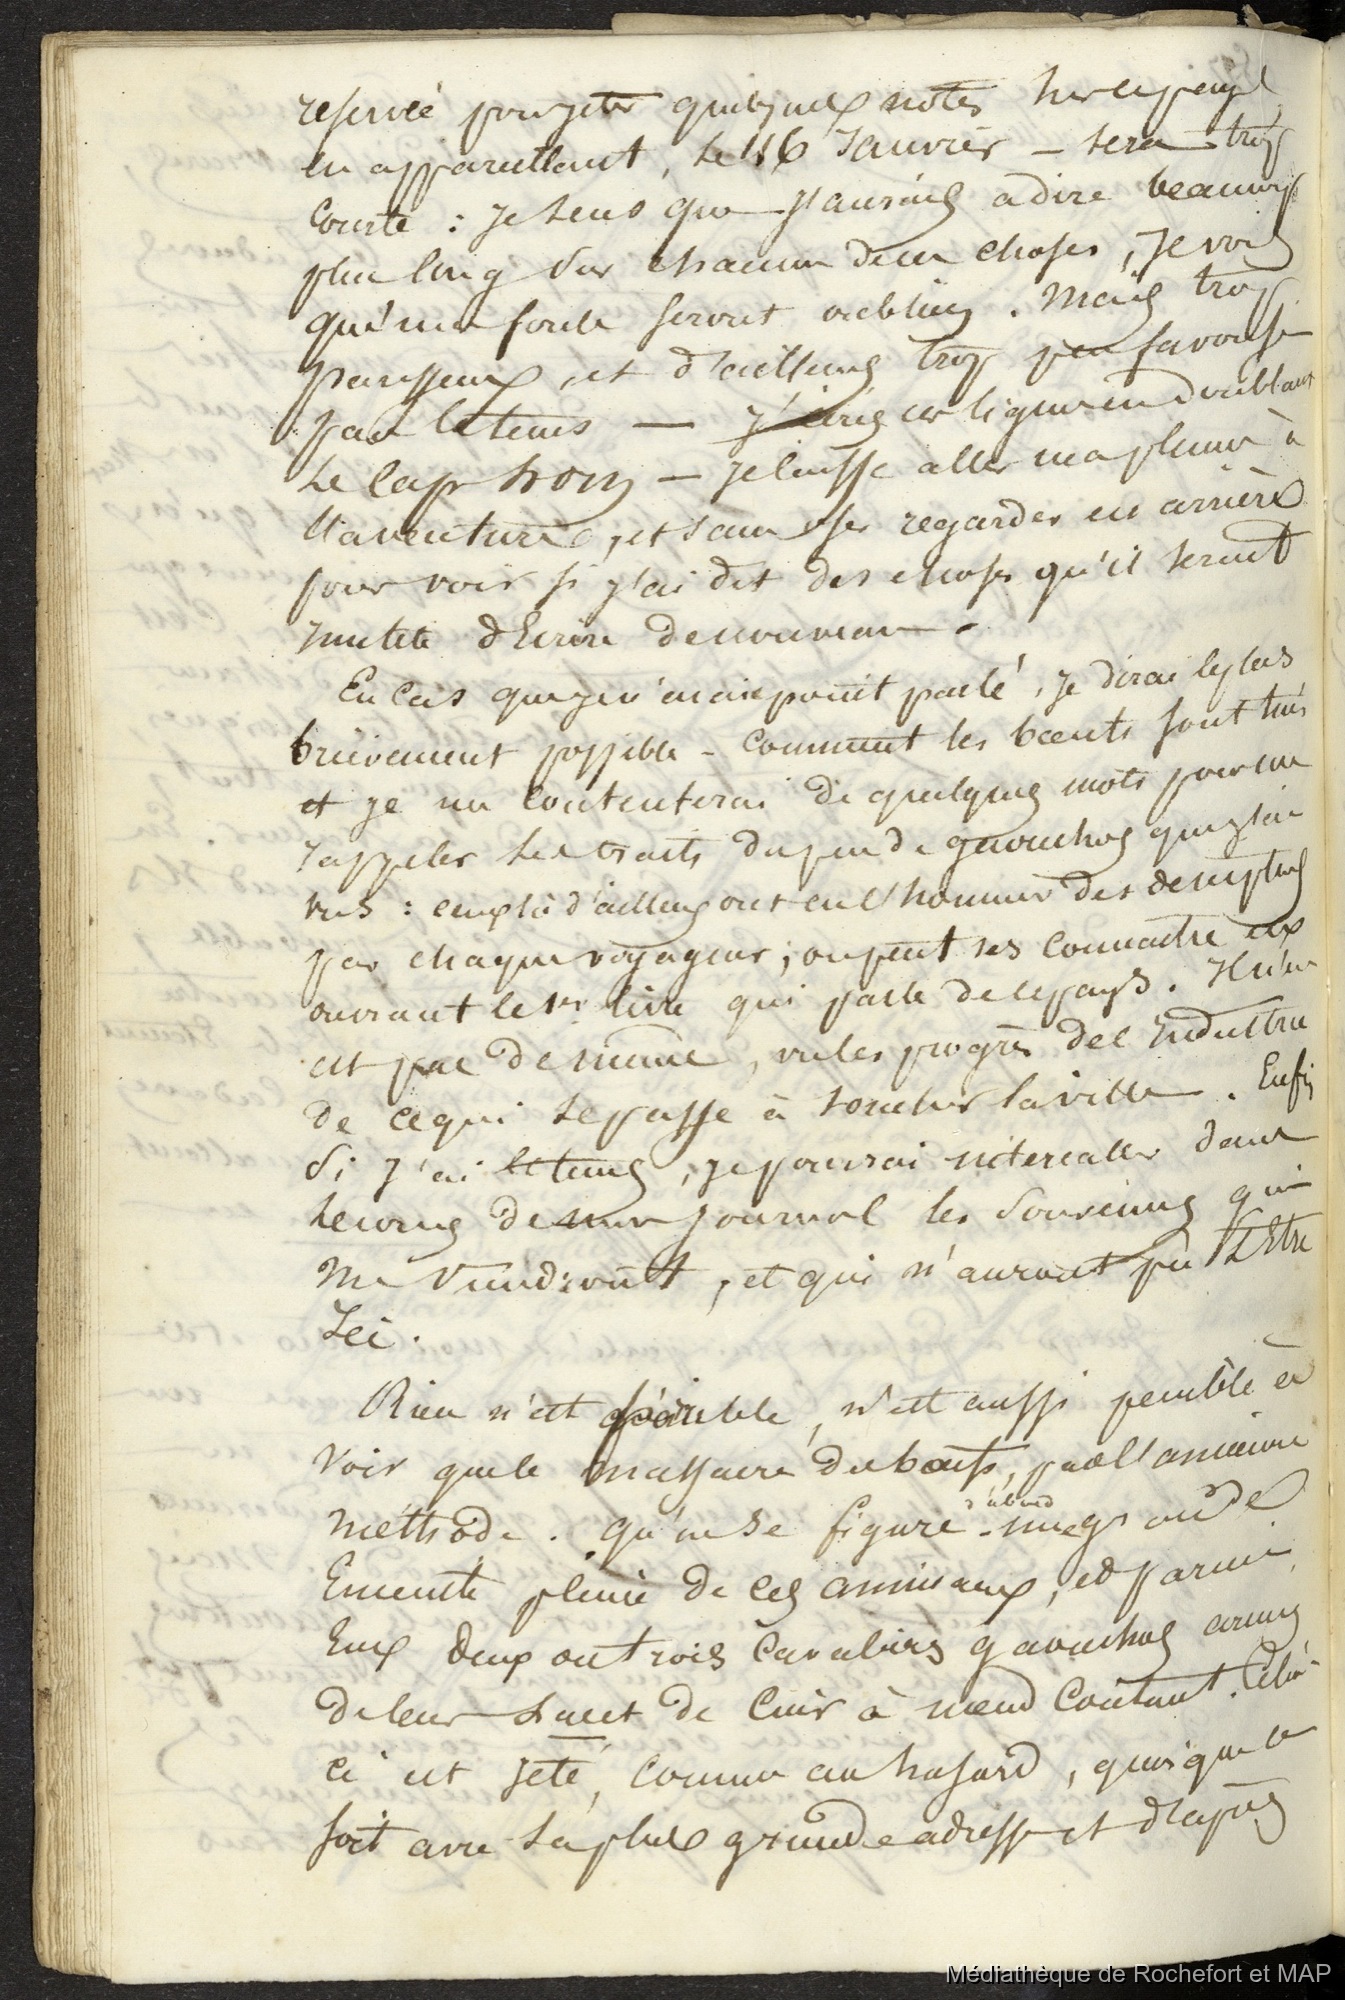 reservé pour jeter quelques notes sur le pays
en appareillant, le 16 Janvier - sera trop
Courte : je sens que j'aurais à dire beaucoup
plus long sur chacune de ces choses, je vois
qu'une foule seront oubliées. Mais trop
paresseux, et d'ailleurs trop peu favorisé
par le tems — j'écris ces lignes en doublant
le Cap horn — je laisse aller ma plume à
l'aventure, et sans oser regarder en arrière
pour voir si j'ai dit des choses qu'il serait
inutile d'Ecrire de nouveau.
En Cas que je n'en aie point parlé, je dirai le plus
brièvement possible - Comment les boeufs sont tués
et je me Contenterai de quelques mots pour me
rappeler les traits du peu de gaouchos que j'ai
vus : ceux là d'ailleurs ont eu l'honneur des descriptions
par chaque voyageur ; on peut les Connaitre en
ouvrant le 1er livre qui parle de ce pays. Il n'en
est pas de même, vu les progrès de l'industrie
de ce qui se passe à toucher la ville. Enfin
Si j'ai le tems, je pourrai intercaller dans
le corps de mon journal les Souvenirs qui
me viendront, et qui n'auront pu l'Etre
Ici.
Rien n'est pénible, n'est aussi penible à
Voir que le massacre des boeufs, par l'ancienne
méthode. qu'on se figure d'abord - une grande
Enceinte pleine de ces animaux, et parmi
Eux deux ou trois Cavaliers gaouchos armés
de leur Lacet de Cuir à noeud Coulant. Celui-
ci est jeté, comme au hasard, quoique ce
soit avec la plus grande adresse et d'après
Médiathèque de Rochefort et MAP